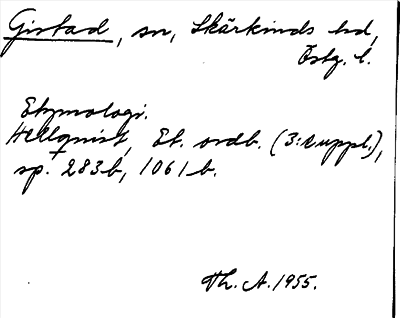 Gistad, sn, Skärkinds hd,
Östg. l.
Etymologi.
Hellquist, Et. ordb. (3:e uppl.),
sp. 283b, 1061b.
Th. A. 1955.